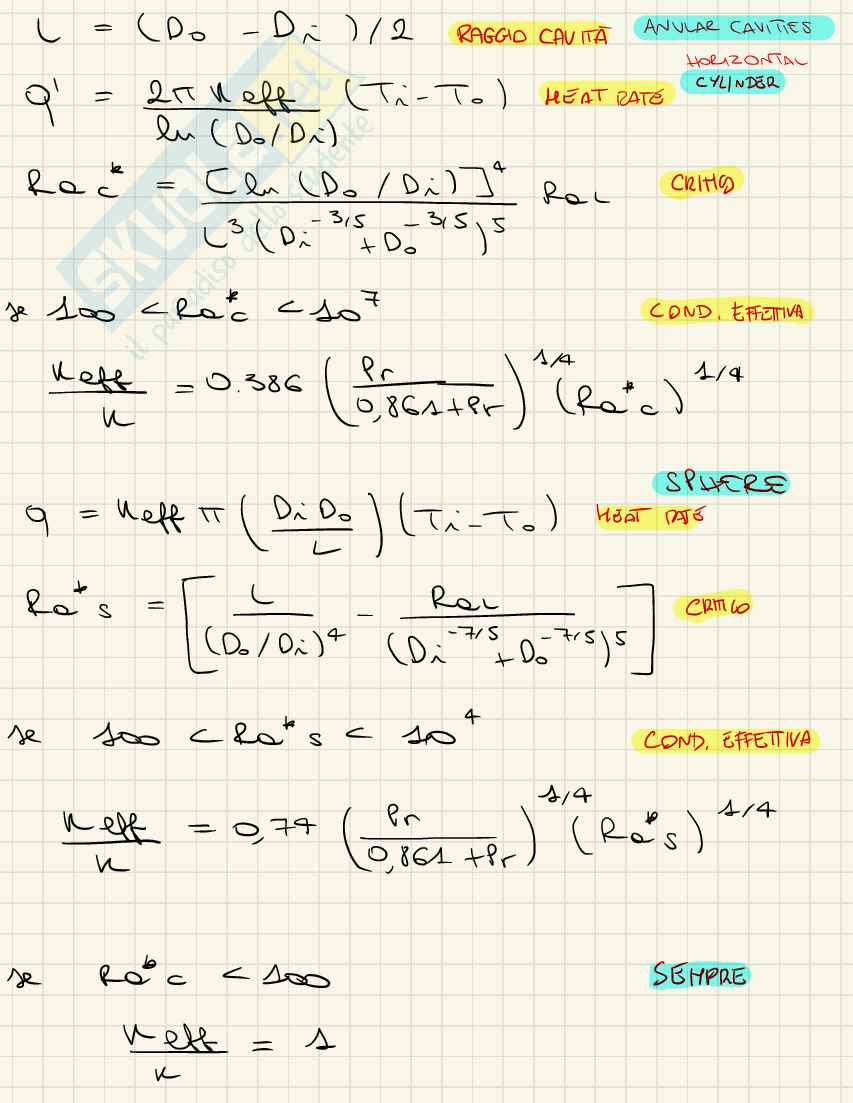 L = (Do - Di)/2 RAGGIO CAVITÀ ANULAR CAVITIES
HORIZONTAL
CYLINDER
q' = 2π keff / ln (Do/Di) (Ti - To) HEAT RATE
Ra*c = [ln (Do / Di)]^4 / L^3 (Di^-3/5 + Do^-3/5)^5 RaL CRITICO
se 100 < Ra*c < 10^7 COND. EFFETTIVA
keff / k = 0.386 (Pr / 0,861 + Pr)^1/4 (Ra*c)^1/4
SPHERE
q = keff π (Di Do / L) (Ti - To) HEAT RATE
Ra*s = [L / (Do/Di)^4 - RaL / (Di^-7/5 + Do^-7/5)^5] CRITICO
se 100 < Ra*s < 10^4 COND. EFFETTIVA
keff / k = 0,74 (Pr / 0,861 + Pr)^1/4 (Ra*s)^1/4
se Ra*c < 100 SEMPRE
keff / k = 1
SKUOLA.net
il paradiso dello studente